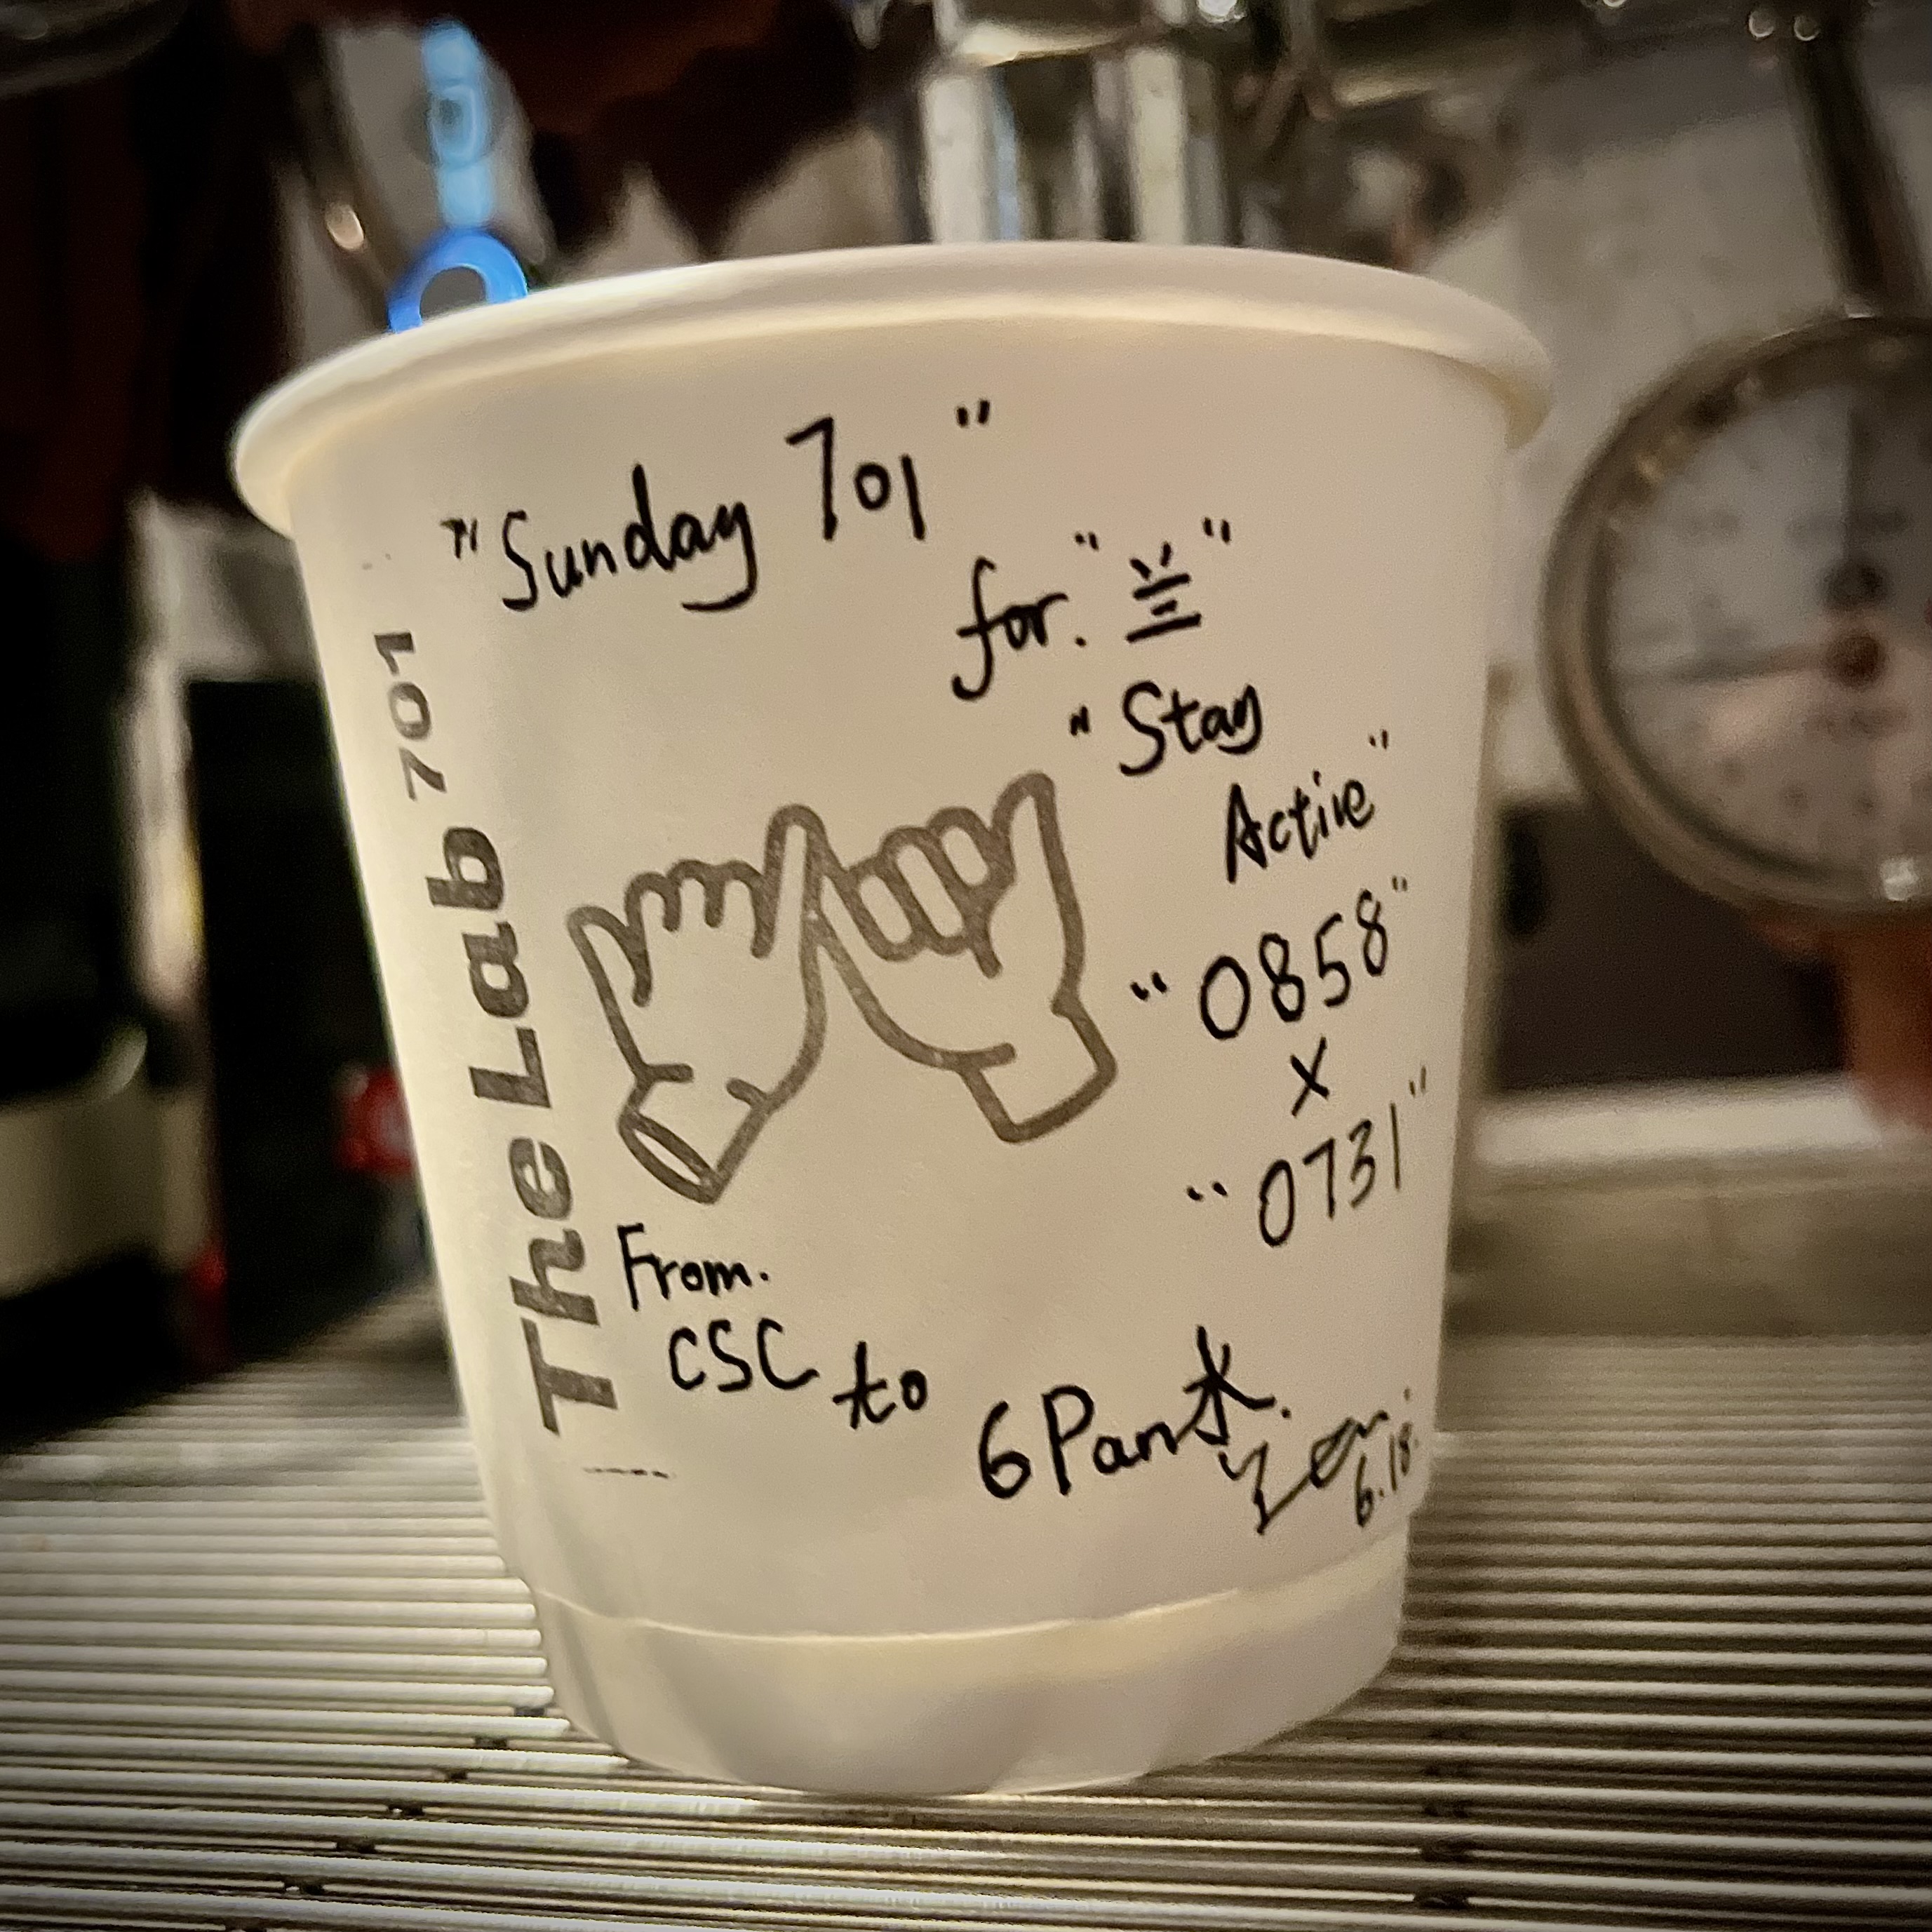 "Sunday 701"
for. "兰"
"Stay
Active"
"0858"
x
"0731"
The Lab 701
From.
CSC to 6Pan水.
6.18.